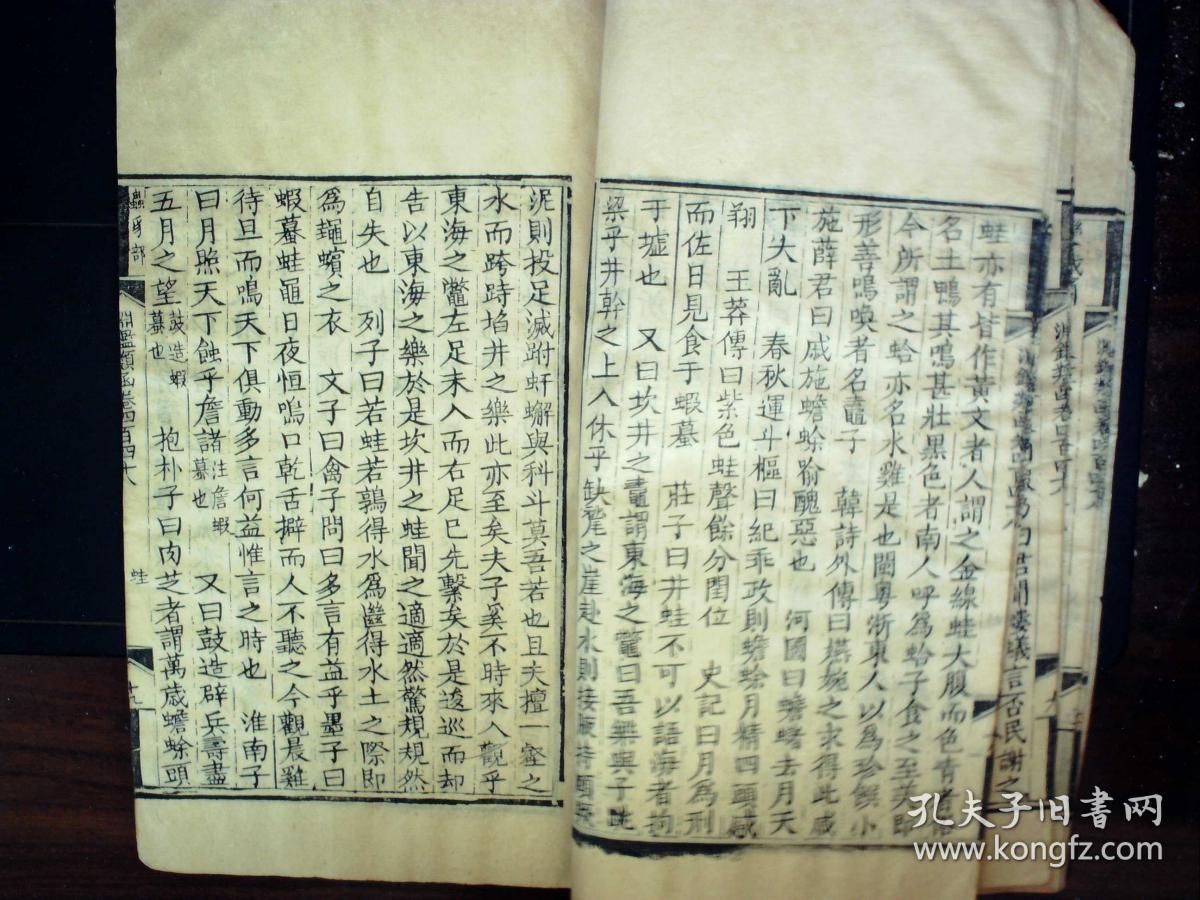 蛙亦有皆作黃文者人謂之金線蛙大腹而色青者俗
名土鴨其鳴甚壯黑色者南人呼為蛤子食之至美即
今所謂之蛤亦名水雞是也閩粵浙東人以為珍饌小
形善鳴喚者名鼃子 韓詩外傳曰 之求得此戚
施薛君曰戚施蟾蜍 醜惡也 河圖曰蟾蠩去月天
下大亂 春秋運斗樞曰紀乖政則蟾蜍月精四頭感
翔 王莽傳曰紫色蛙聲餘分閏位 史記曰月為刑
而佐日見食于蝦蟇 莊子曰井蛙不可以語海者拘
于墟也 又曰坎井之鼃謂東海之鼈曰吾樂與予跳
梁乎井幹之上入休乎缺甃之崖赴水則接腋持頤
泥則投足滅跗 蠏與科斗莫吾若也且夫擅一壑之
水而跨跱埳井之樂此亦至矣夫子奚不時來入觀乎
東海之鼈左足未入而右足已先縶矣於是逡巡而却
告以東海之樂於是坎井之蛙聞之適適然驚規規然
自失也 列子曰若蛙若鶉得水為㡭得水土之際即
為鼃蠙之衣 文子曰禽子問曰多言有益乎墨子曰
蝦蟇蛙黽日夜恒鳴口乾舌擗而人不聽之今觀晨雞
待旦而鳴天下俱動多言何益惟言之時也 淮南子
曰月照天下蝕乎詹諸注詹蝦蟇也 又曰鼓造辟兵壽盡
五月之望鼓造蝦蟇也 抱朴子曰肉芝者謂萬歲蟾蜍頭
蟲豸部
淵鑑類函卷四百四十八
蛙
十九
孔夫子旧书网
www.kongfz.com